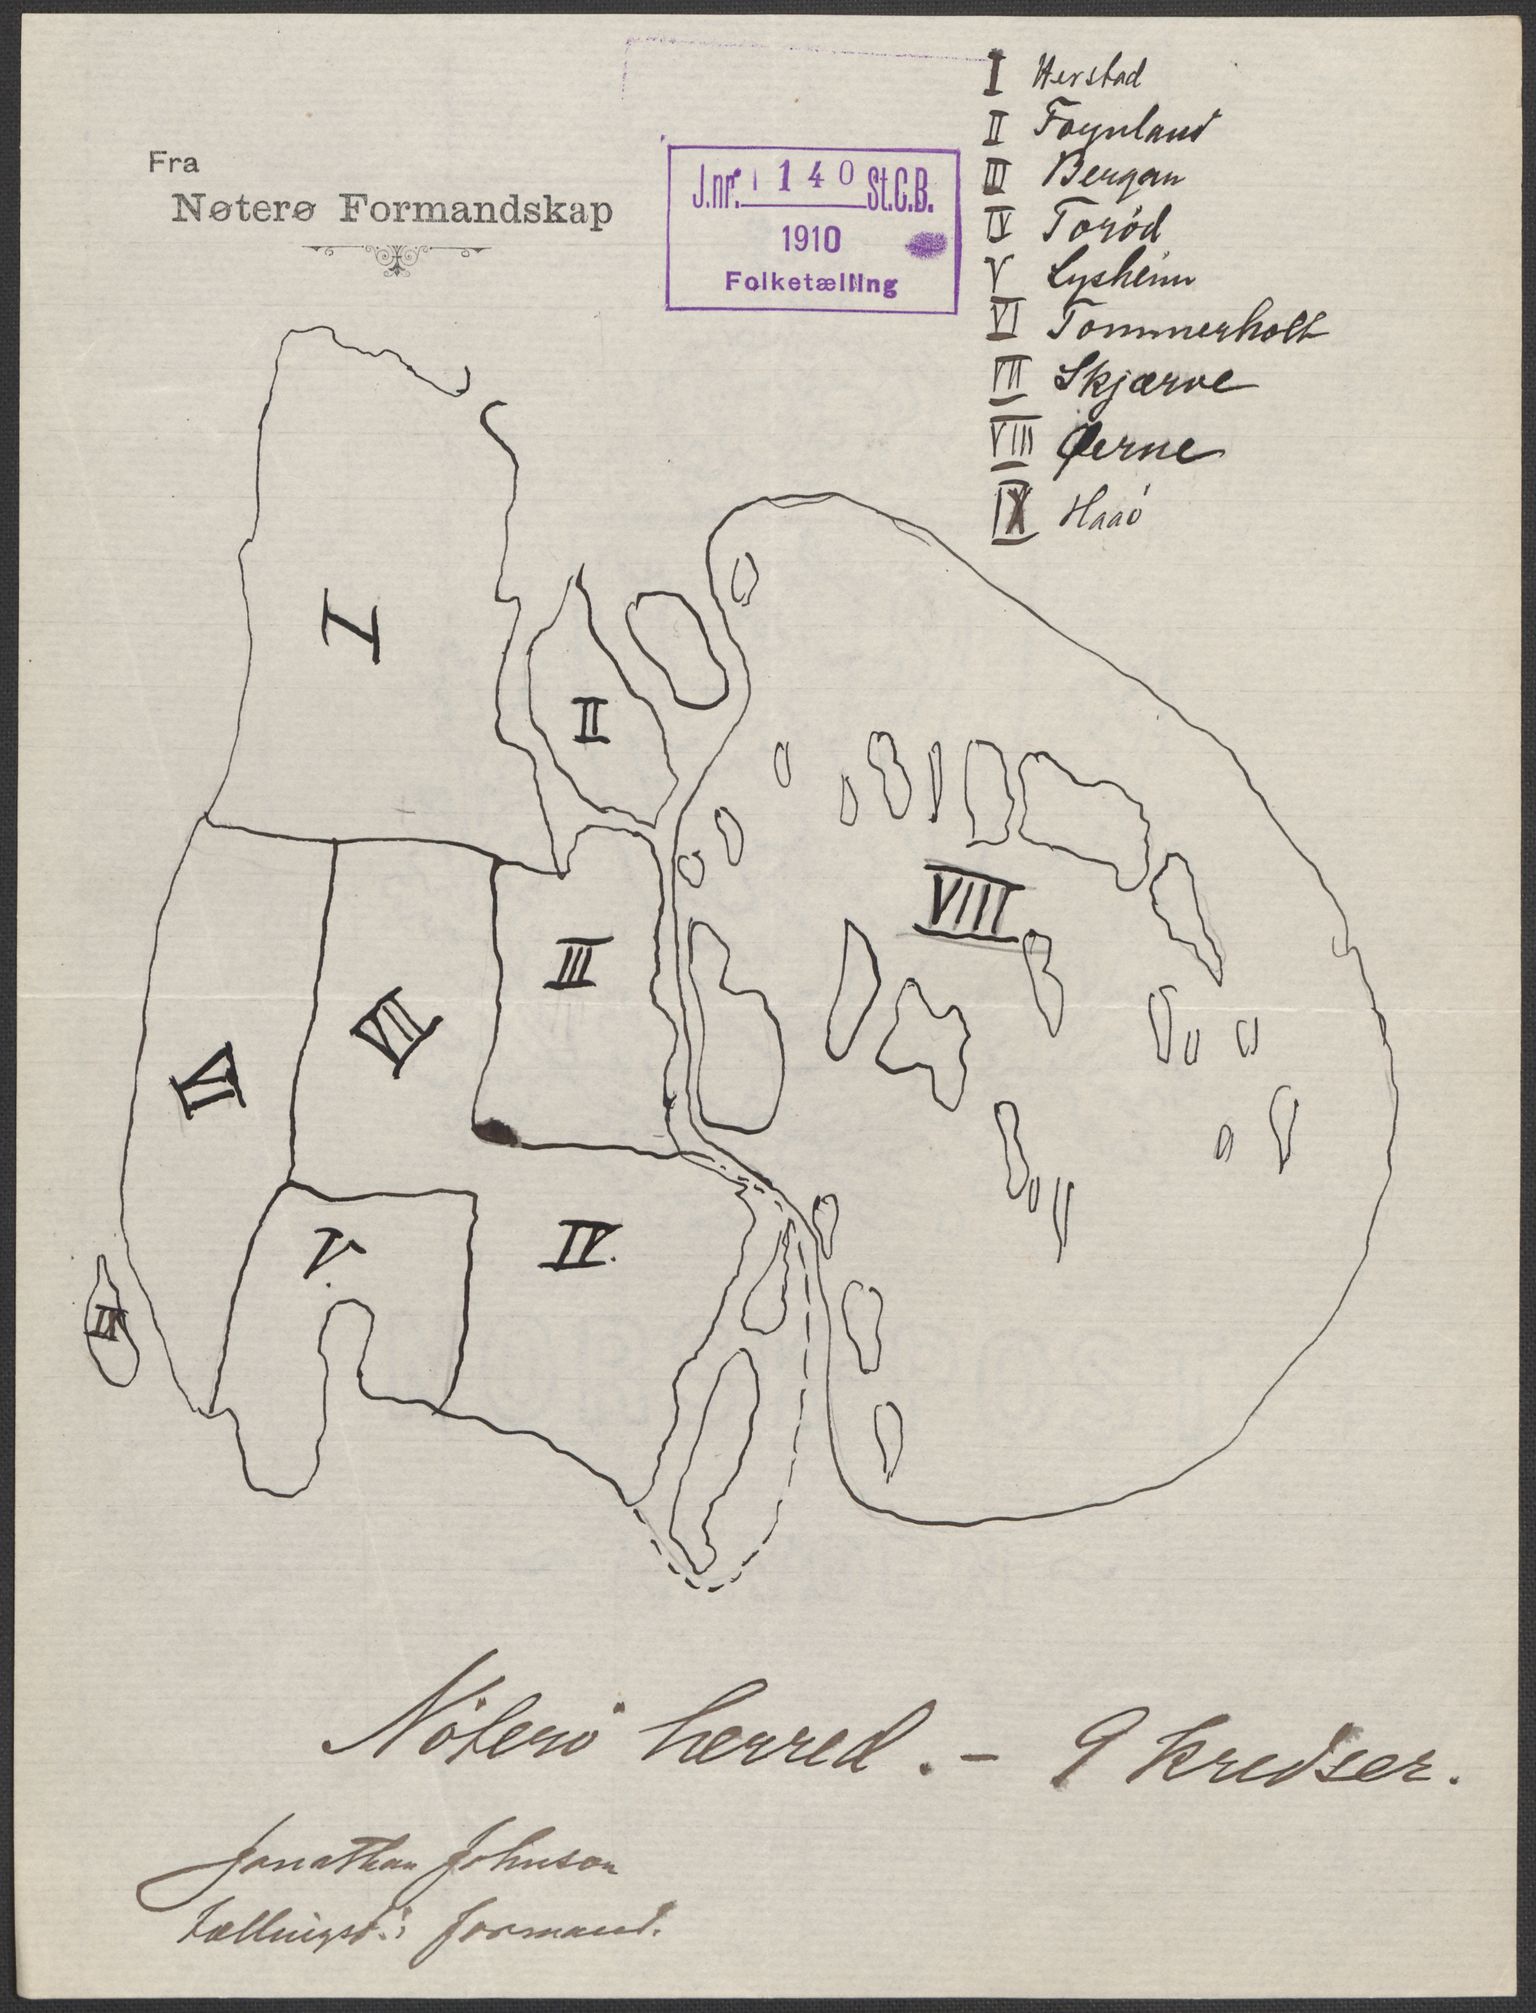 Fra
Nøterø Formandskap
J.nr. 140 St.C.B.
1910
Folketælling
I Herstad
II Foynland
III Bergan
IV Toród
V Lysheim
VI Tommerholt
VII Skjærve
VIII Øerne
IX Haaó
I
II
VIII
III
VII
VI
IV.
V.
IX
Nóteró herred. - 9 kredser.
Jonathan Johnson
formand.